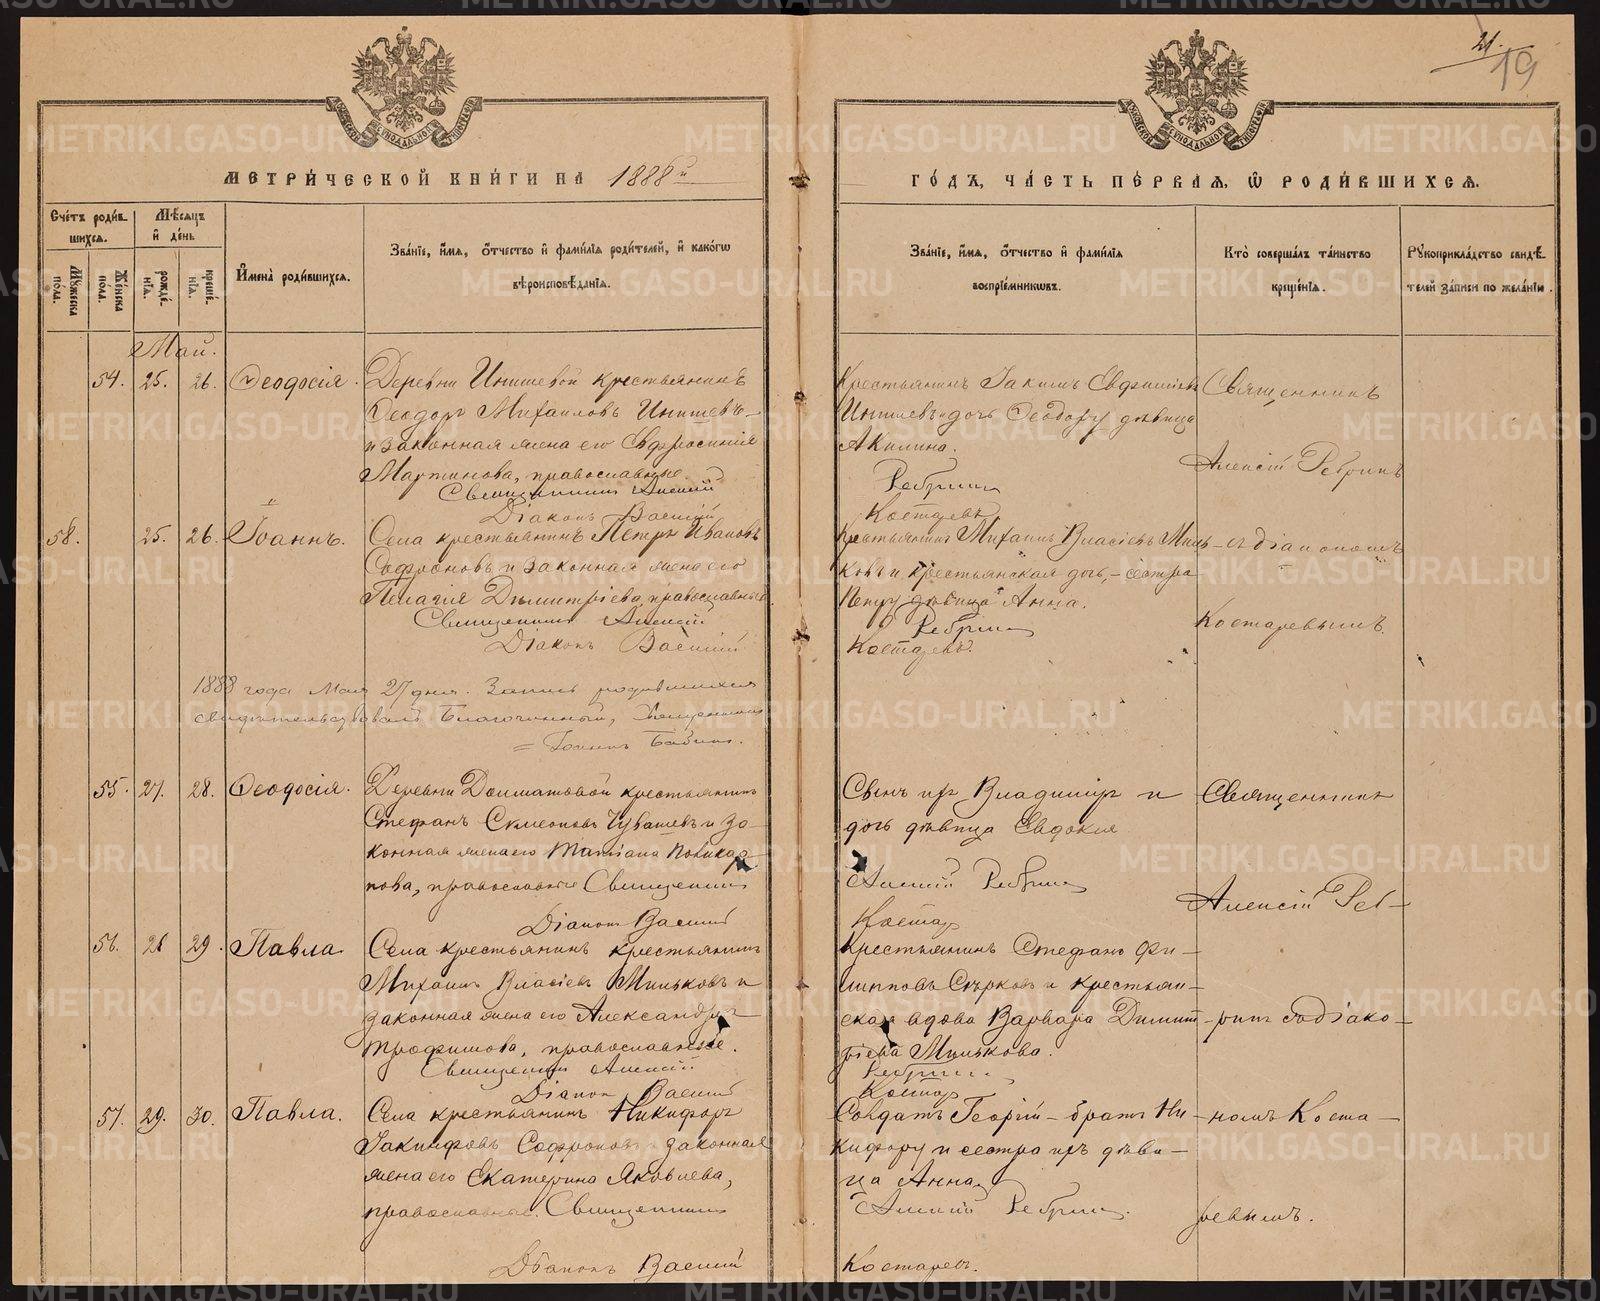 21.
19
МЕТРИ́ЧЕСКОЙ КНИ́ГИ НА 1888й
ГО́ДЪ, ЧА́СТЬ ПЕ́РВАЯ, Ѡ РОДИ́ВШИХСЯ.
Сче́тъ роди́вшихся.
Мѣ́сяцъ и҆ де́нь
Мꙋжеска пола.
Же́нска пола.
рожде́нїя.
креще́нїя.
И҆мена̀ роди́вшихся.
Зва́нїе, и҆́мя, ѻ҆́тчество и҆ фами́лїя роди́телей, и҆ како́гѡ
вѣроисповѣ́данїя.
Зва́нїе, и҆́мя, ѻ҆́тчество и҆ фами́лїя
воспрїе́мникѡвъ.
Кто̀ соверша́лъ та́инство
креще́нїя.
Рꙋкоприкла́дство свидѣ́
телей за́писи по жела́нїю.
Май.
54. 25. 26. Ѳеодосія.
Деревни Инишевой крестьянинъ
Ѳеодоръ Михаиловъ Инишевъ
и законная жена его Евфросинія
Мартинова, православные.
Священникъ Алексій Ребринъ
Діаконъ Василій Костаревъ
Крестьянинъ Іакимъ Евфиміевъ
Инишевъ и дочь Ѳеодору дѣвица
Акилина.
Священникъ
Алексій Ребринъ
58. 25. 26. Іоаннъ.
Села крестьянинъ Петръ Ивановъ
Софроновъ и законная жена его
Пелагія Димитріева, православные.
Священникъ Алексій Ребринъ
Діаконъ Василій Костаревъ.
Крестьянинъ Михаилъ Власіевъ Миль-
ковъ и крестьянская дочь, - сестра
Петру дѣвица Анна.
съ діакономъ
Костаревымъ.
1888 года Мая 27 дня. Запись родившихся
свидѣтельствовалъ Благочинный, Священникъ
= Іоаннъ Бабинъ.
55. 27. 28. Ѳеодосія.
Деревни Долматовой крестьянинъ
Стефанъ Симеоновъ Чувашевъ и за-
конная жена его Татіана Поликар-
пова, православные Священникъ Алексій Ребринъ
Діаконъ Василій Костар
Сынъ их Владиміръ и
дочь дѣвица Евдокія
Священник
Алексій Реб-
56. 28 29. Павла
Села крестьянинъ крестьянинъ
Михаилъ Власіевъ Мильковъ и
законная жена его Александра
Трофимова, православные.
Священникъ Алексій Ребринъ
Діакон Василій Костар
Крестьянинъ Стефанъ Фи-
липповъ Сѣрковъ и крестьян-
ская вдова Варвара Димит-
ріева Милькова.
рин с діако-
57. 29. 30. Павла.
Села крестьянинъ Никифоръ
Іакинфовъ Софроновъ и законная
жена его Екатерина Яковлева,
православные. Священникъ Алексій Ребринъ.
Діаконъ Василій Костаревъ.
Солдатъ Георгій - братъ Ни-
кифору и сестра ихъ дѣви-
ца Анна
номъ Коста-
ревымъ.
METRIKI.GASO-URAL.RU